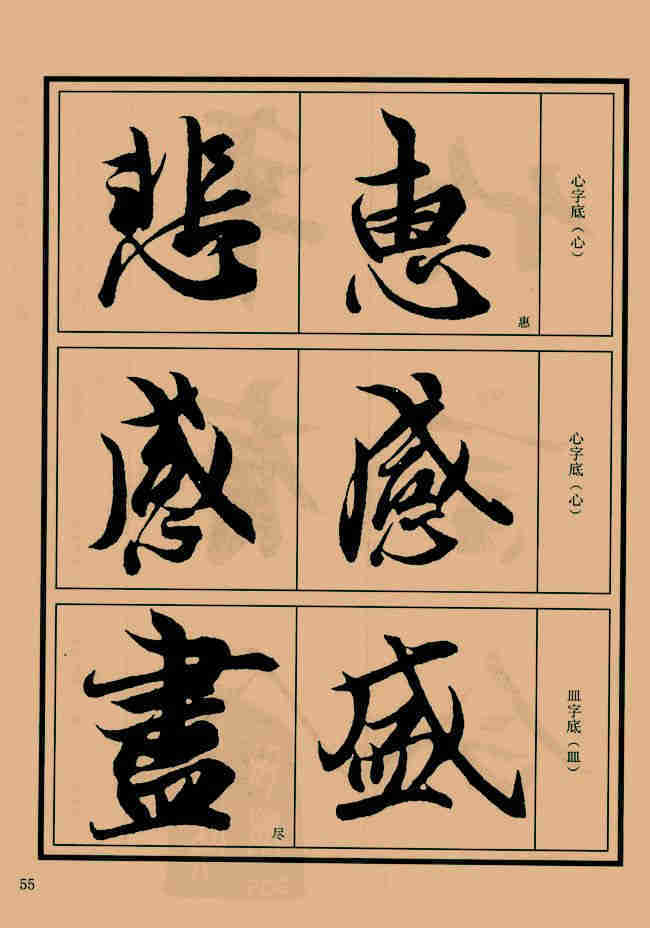 心字底（心）
惠
惠
悲
心字底（心）
感
感
皿字底（皿）
盛
盡
尽
55